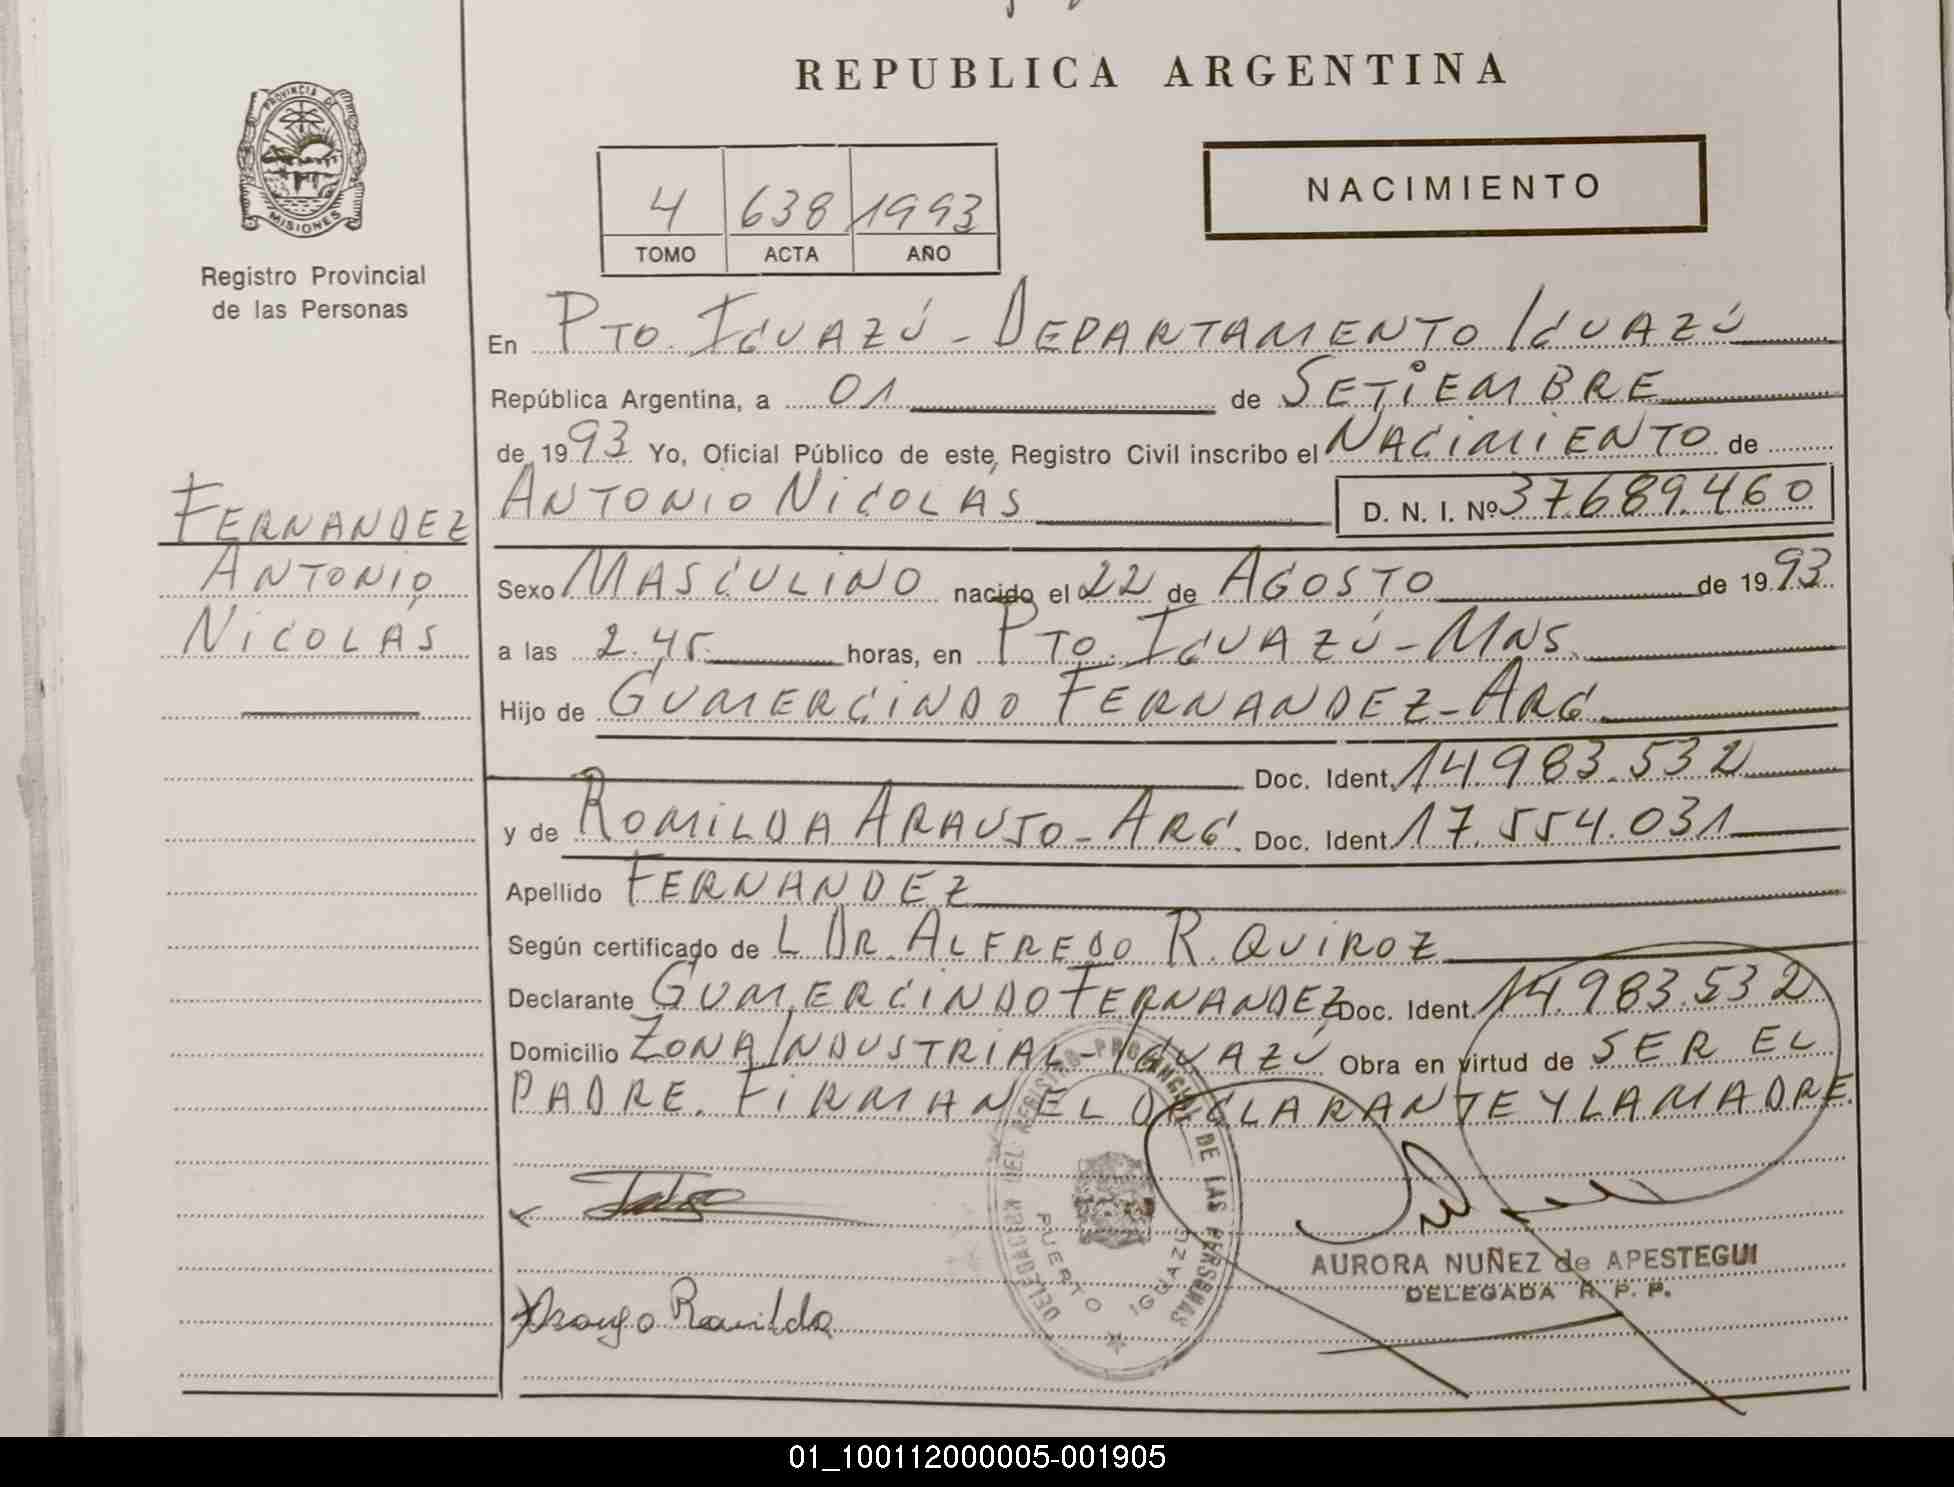 REPUBLICA ARGENTINA
PROVINCIA DE
MISIONES
Registro Provincial
de las Personas
4 638 1993
TOMO ACTA AÑO
NACIMIENTO
En PTO. IGUAZÚ - DEPARTAMENTO IGUAZÚ
República Argentina, a 01 de SETIEMBRE
de 1993 Yo, Oficial Público de este Registro Civil inscribo el NACIMIENTO de
ANTONIO NICOLÁS D. N. I. Nº 37689.460
FERNANDEZ
ANTONIO
NICOLÁS
Sexo MASCULINO nacido el 22 de AGOSTO de 1993
a las 2.45 horas, en PTO. IGUAZÚ - MNS.
Hijo de GUMERCINDO FERNANDEZ - ARG
Doc. Ident. 14.983.532
y de ROMILDA ARAUJO - ARG. Doc. Ident. 17.554.031
Apellido FERNANDEZ
Según certificado de L DR. ALFREDO R. QUIROZ
Declarante GUMERCINDO FERNANDEZ Doc. Ident. 14.983.532
Domicilio ZONA INDUSTRIAL - IGUAZÚ Obra en virtud de SER EL
PADRE. FIRMAN EL DECLARANTE Y LA MADRE.
DELEGACION DEL REGISTRO PROVINCIAL DE LAS PERSONAS
PUERTO IGUAZU
AURORA NUÑEZ de APESTEGUI
DELEGADA R. P. P.
Araujo Romilda
01_100112000005-001905